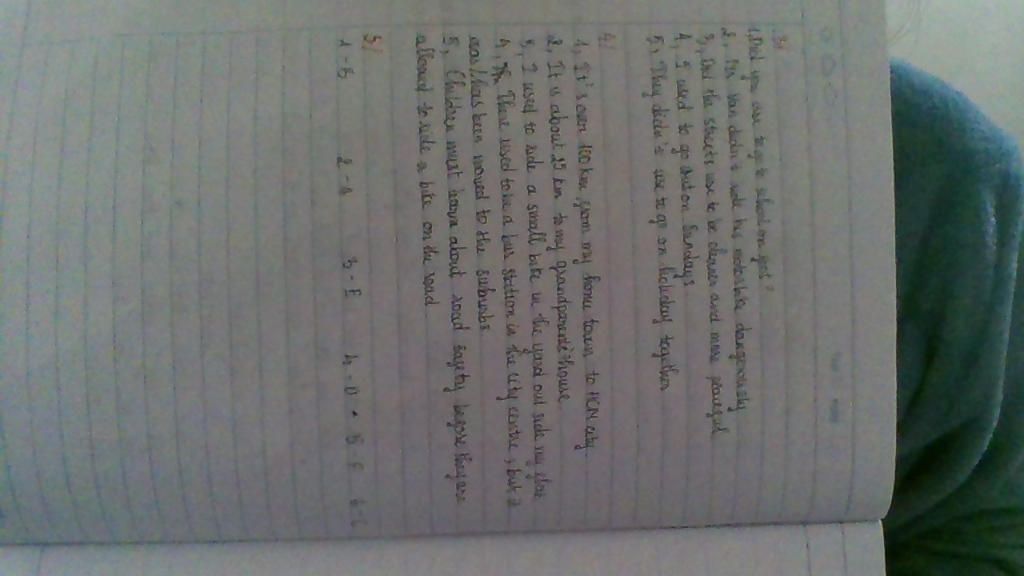 3/
1. Did you use to go to school on foot?
2, Mr Van didn't ride his motorbike dangerously
3, Did the streets use to be cleaner and more peaceful
4, I used to go out on Sundays
5, They didn't use to go on holiday together
4/
1, It's over 100 km from my home town to HCM city
2. It is about 25 km to my grandparents' house
3, I used to ride a small bike in the yard out side my
4, There used to be a bus station in the city centre, but it
was/has been moved to the suburbs
5, Children must learn about road safety before they are
allowed to ride a bike on the road
5/
1 - B 2 - A 3 - E 4 - D 5 - F 6 - C